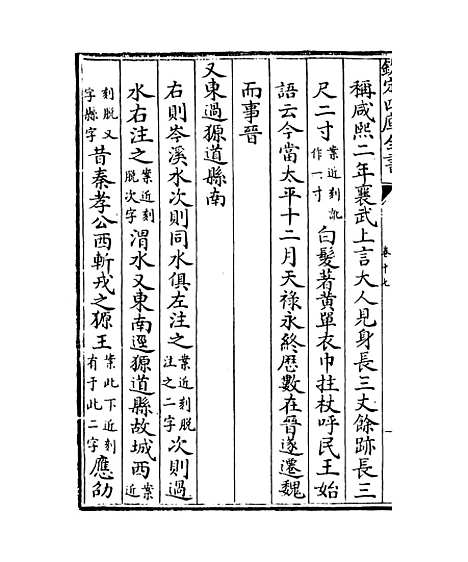 欽定四庫全書
卷十七
稱咸熙二年襄武上言大人見身長三丈餘跡長三
尺二寸案近刻訛作一寸白髮著黃單衣巾拄杖呼民王始
語云今當太平十二月天祿永終歷數在晉遂遷魏
而事晉
又東過獂道縣南
右則岑溪水次則同水俱左注之案近刻脱注之二字次則過
水右注之案近刻脱次字渭水又東南逕獂道縣故城西案近
刻脱又字縣字昔秦孝公西斬戎之獂王案此下近刻有于此二字應劭